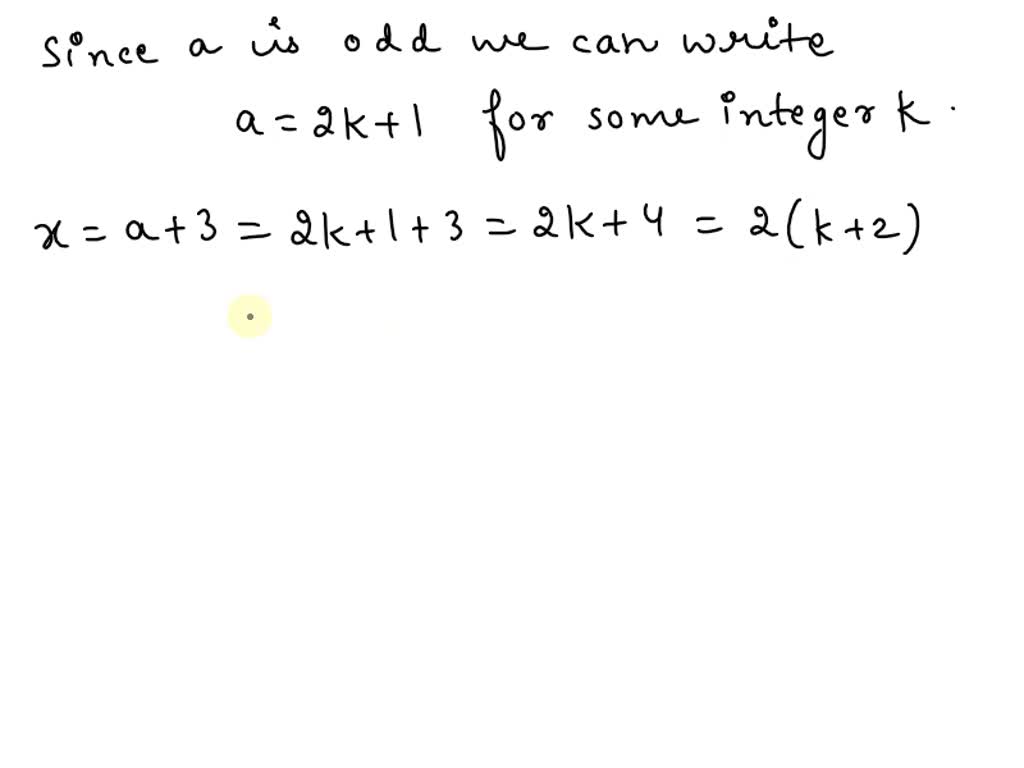 Since a is odd we can write
a = 2k+1 for some integer k.
x = a+3 = 2k+1+3 = 2k+4 = 2(k+2)